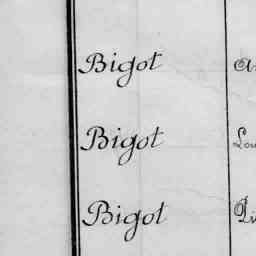 Bigot
Bigot Lou
Bigot